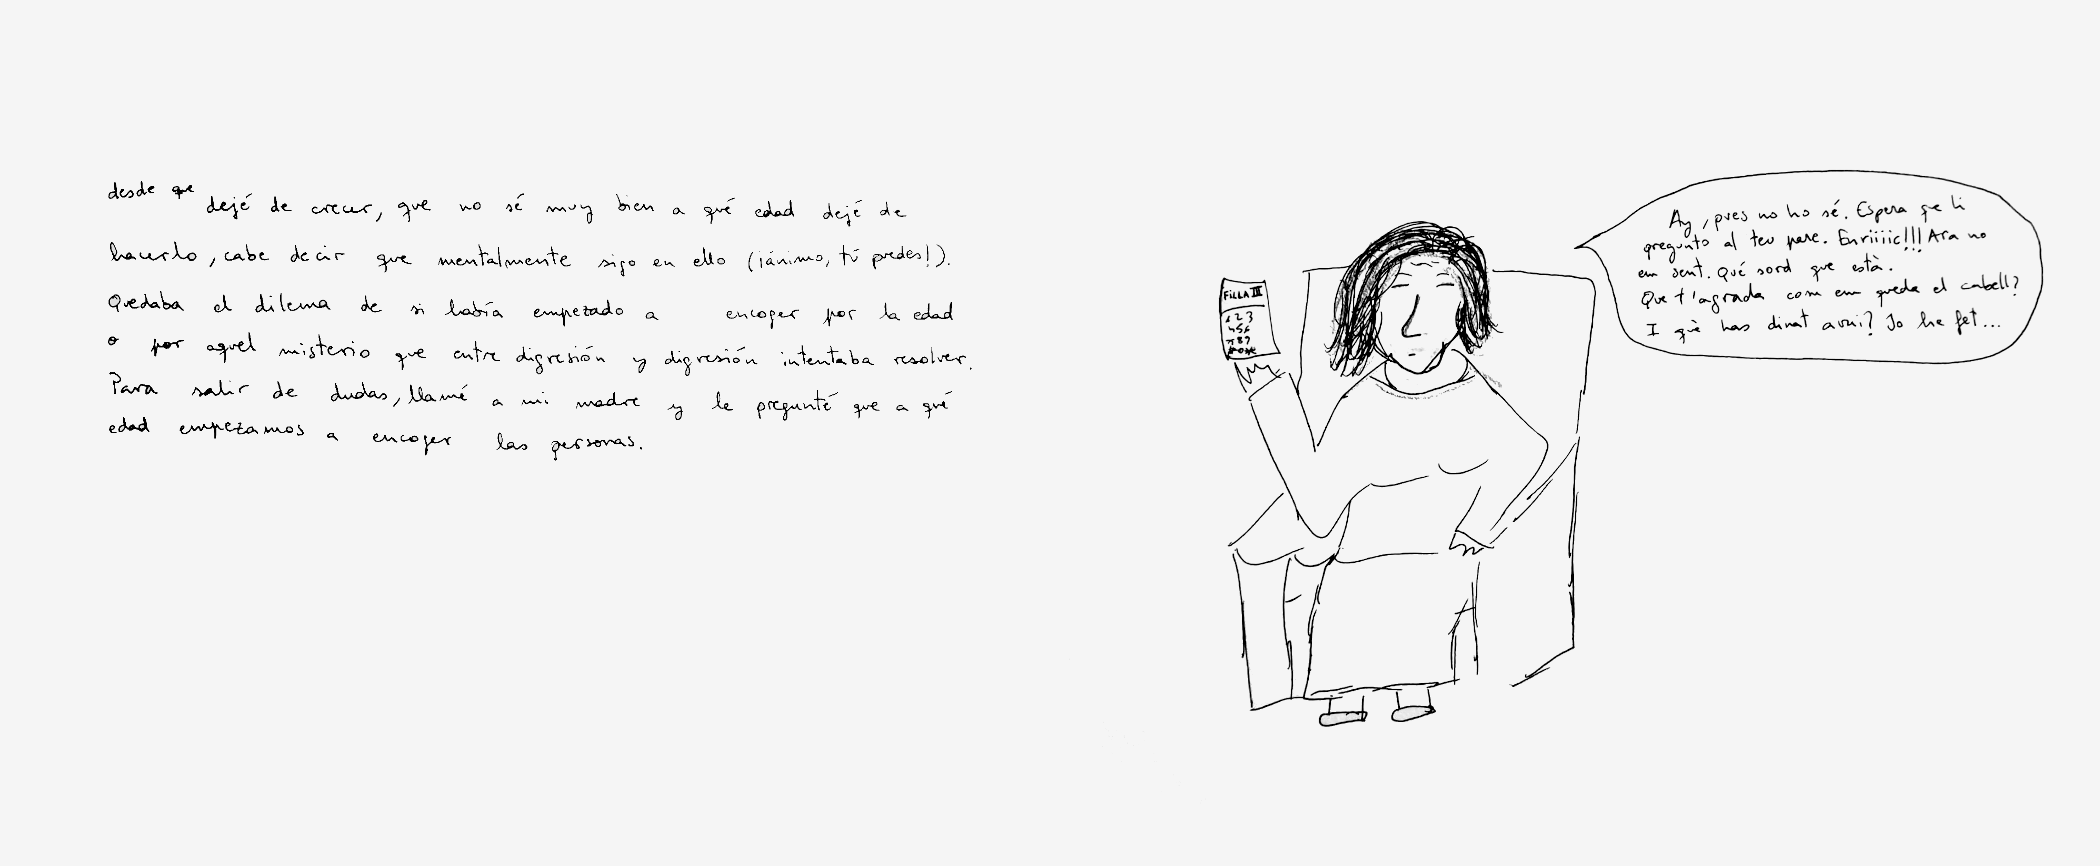 desde que dejé de crecer, que no sé muy bien a qué edad dejé de
hacerlo, cabe decir que mentalmente sigo en ello (¡ánimo, tú puedes!).
Quedaba el dilema de si había empezado a encoger por la edad
o por aquel misterio que entre digresión y digresión intentaba resolver.
Para salir de dudas, llamé a mi madre y le pregunté que a qué
edad empezamos a encoger las personas.
FILLA III
1 2 3
4 5 6
7 8 9
Ay, pues no ho sé. Espera que li
pregunto al teu pare. Enriiiic!!! Ara no
em sent. Qué sord que està.
Que t'agrada com em queda el cabell?
I què has dinat avui? Jo he fet...